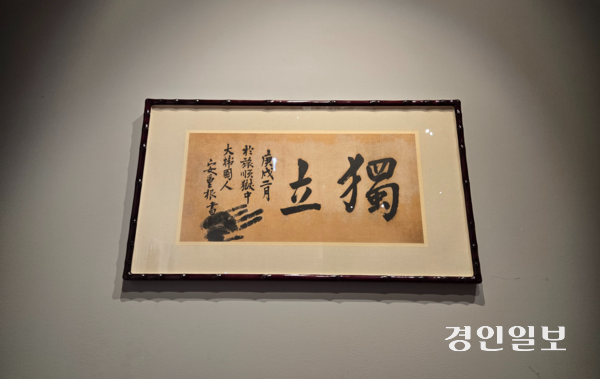 獨立
庚戌二月
於旅順獄中
大韓國人
安重根書
경인일보